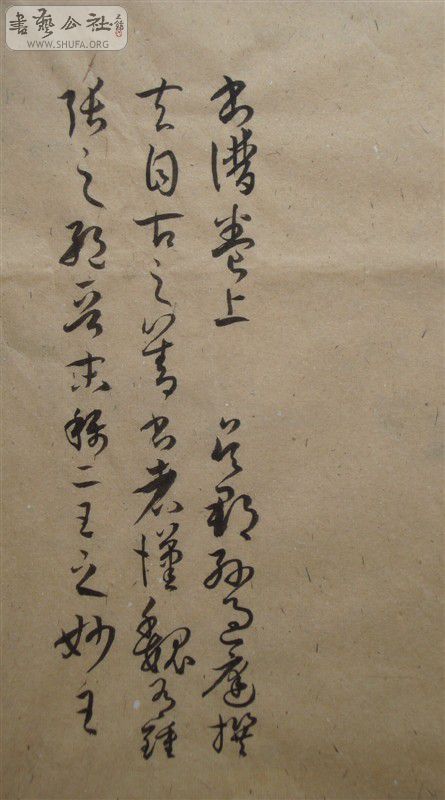 書藝公社
WWW.SHUFA.ORG
書譜卷上 吳郡孫過庭撰
夫自古之善書者漢魏有鍾
張之絕晉末稱二王之妙王